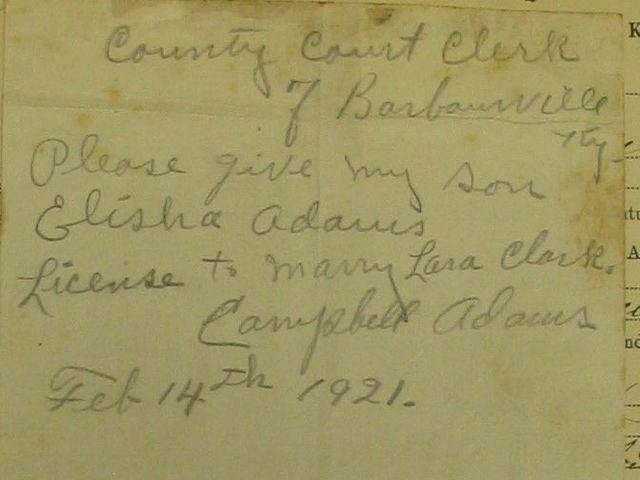 County Court Clerk
of Barbourville
Ky.
Please give my son
Elisha Adams
License to marry Lara Clark.
Campbell Adams
Feb 14th 1921.